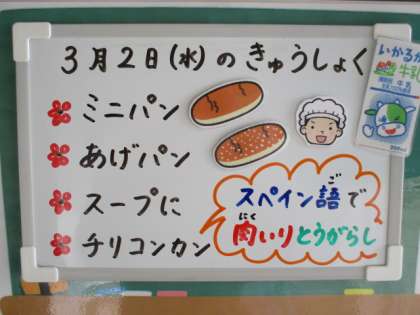 3月2日(水)のきゅうしょく
ミニパン
あげパン
スープに
チリコンカン
スペイン語で
ご
肉いりとうがらし
にく
いかるが
牛乳